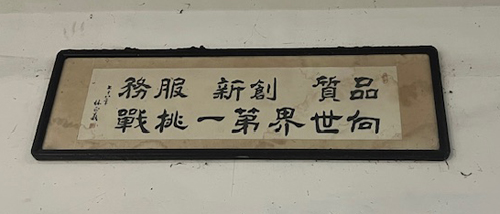 品質 創新 服務
向世界第一挑戰